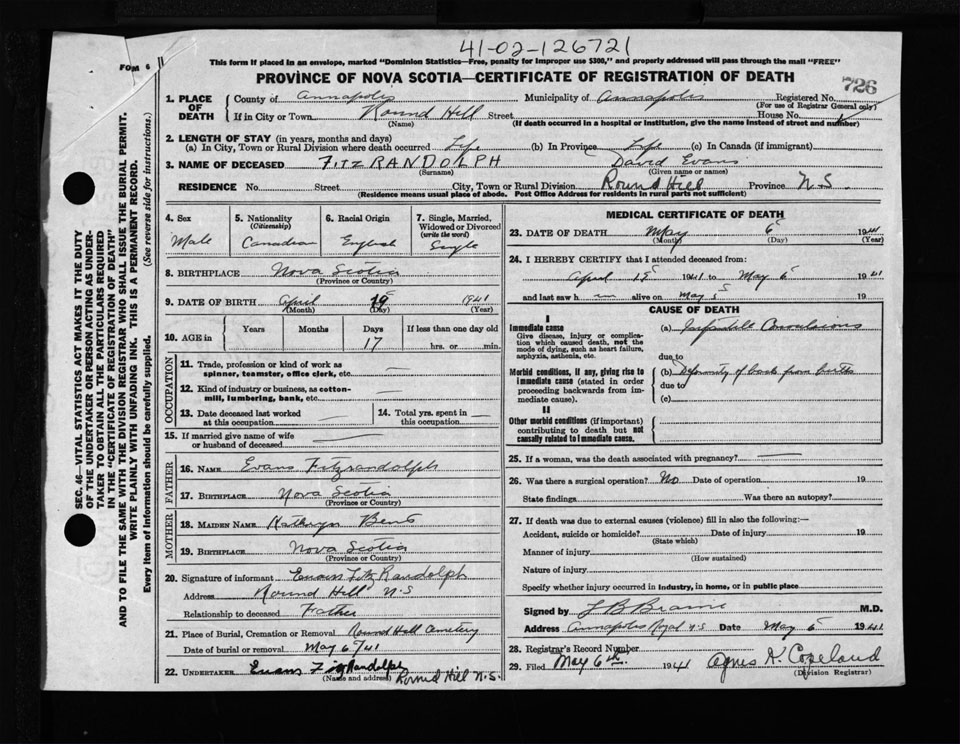 41-02-126721
FOM 6
This form if placed in an envelope, marked "Dominion Statistics—Free, penalty for improper use $300," and properly addressed will pass through the mail "FREE"
PROVINCE OF NOVA SCOTIA—CERTIFICATE OF REGISTRATION OF DEATH
726
1. PLACE OF DEATH County of Annapolis Municipality of Annapolis Registered No.
(For use of Registrar General only)
If in City or Town Round Hill Street House No.
(Name) (If death occurred in a hospital or institution, give the name instead of street and number)
2. LENGTH OF STAY (in years, months and days)
(a) In City, Town or Rural Division where death occurred Life (b) In Province Life (c) In Canada (if immigrant)
3. NAME OF DECEASED FITZ RANDOLPH David Evans
(Surname) (Given name or names)
RESIDENCE No. Street City, Town or Rural Division Round Hill Province N.S.
(Residence means usual place of abode. Post Office Address for residents in rural parts not sufficient)
SEC. 46—VITAL STATISTICS ACT MAKES IT THE DUTY
OF THE UNDERTAKER OR PERSON ACTING AS UNDER-
TAKER TO OBTAIN ALL THE PARTICULARS REQUIRED
IN THE "CERTIFICATE OF REGISTRATION OF DEATH"
AND TO FILE THE SAME WITH THE DIVISION REGISTRAR WHO SHALL ISSUE THE BURIAL PERMIT.
WRITE PLAINLY WITH UNFADING INK. THIS IS A PERMANENT RECORD.
Every item of Information should be carefully supplied. (See reverse side for instructions.)
4. Sex 5. Nationality 6. Racial Origin 7. Single, Married,
(Citizenship) Widowed or Divorced
(write the word)
Male Canadian English Single
8. BIRTHPLACE Nova Scotia
(Province or Country)
9. DATE OF BIRTH April 19 1941
(Month) (Day) (Year)
10. AGE in Years Months Days If less than one day old
17 hrs. or min.
OCCUPATION
11. Trade, profession or kind of work as
spinner, teamster, office clerk, etc. —
12. Kind of industry or business, as cotton-
mill, lumbering, bank, etc. —
13. Date deceased last worked 14. Total yrs. spent in
at this occupation this occupation.
15. If married give name of wife
or husband of deceased —
FATHER
16. NAME Evans Fitzrandolph
17. BIRTHPLACE Nova Scotia
(Province or Country)
MOTHER
18. MAIDEN NAME Kathryn Bent
19. BIRTHPLACE Nova Scotia
(Province or Country)
20. Signature of informant Evans Fitz Randolph
Address Round Hill N.S
Relationship to deceased Father
21. Place of Burial, Cremation or Removal Round Hill Cemetery
Date of burial or removal May 6/41
22. UNDERTAKER Evans Fitz Randolph
(Name and address) Round Hill N.S.
MEDICAL CERTIFICATE OF DEATH
23. DATE OF DEATH May 6 1941
(Month) (Day) (Year)
24. I HEREBY CERTIFY that I attended deceased from:
April 19 1941 to May 6 1941
and last saw h im alive on May 5 19
CAUSE OF DEATH
I
Immediate cause (a) Infantile Convulsions
Give disease, injury or complica-
tion which caused death, not the
mode of dying, such as heart failure,
asphyxia, asthenia, etc.
due to
Morbid conditions, if any, giving rise to (b) Deformity of back from birth
immediate cause (stated in order due to
proceeding backwards from im-
mediate cause). (c)
II
Other morbid conditions (if important)
contributing to death but not
causally related to immediate cause.
25. If a woman, was the death associated with pregnancy? —
26. Was there a surgical operation? No Date of operation 19
State findings Was there an autopsy?
27. If death was due to external causes (violence) fill in also the following:—
Accident, suicide or homicide? Date of injury 19
(State which)
Manner of injury
(How sustained)
Nature of injury
Specify whether injury occurred in industry, in home, or in public place
Signed by L B Braine M.D.
Address Annapolis Royal N.S Date May 6 1941
28. Registrar's Record Number
29. Filed May 6th. 1941 Agnes H. Copeland
(Division Registrar)